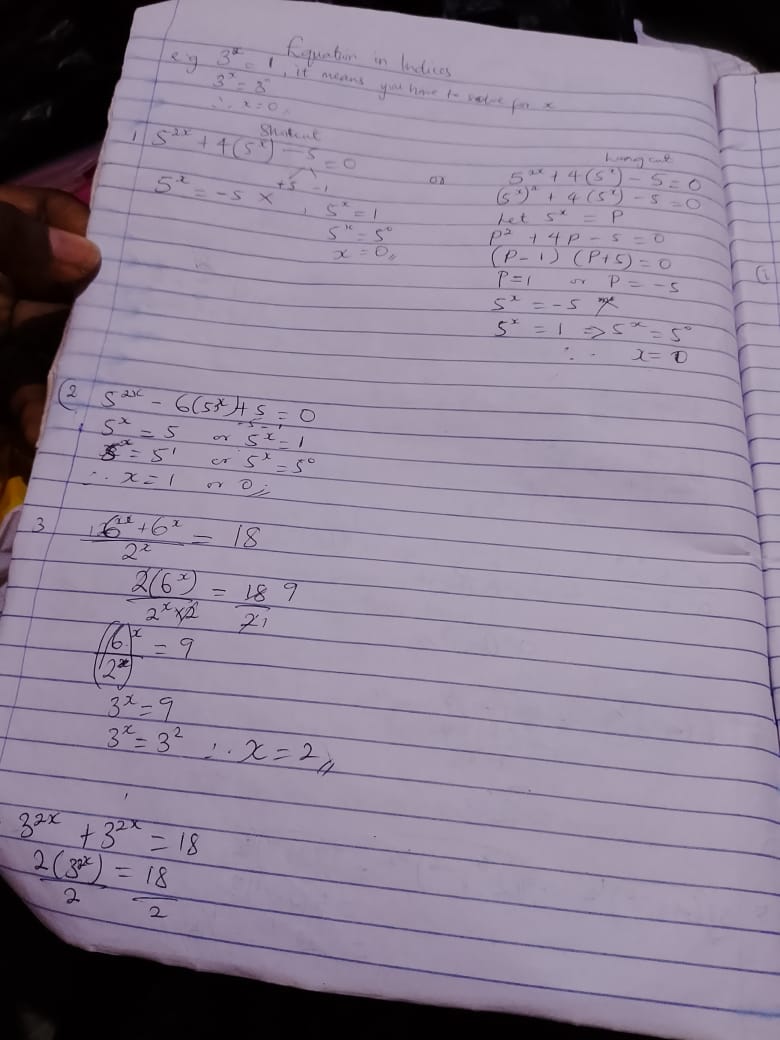 Equation in Indices
e.g 3ˣ = 1, it means you have to solve for x
3ˣ = 3⁰
∴ x = 0
Shortcut
1. 5²ˣ + 4(5ˣ) - 5 = 0
+5 -1
5ˣ = -5 ×, 5ˣ = 1
5ˣ = 5⁰
x = 0,,
or
Long cut
5²ˣ + 4(5ˣ) - 5 = 0
(5ˣ)² + 4(5ˣ) - 5 = 0
Let 5ˣ = P
P² + 4P - 5 = 0
(P - 1) (P + 5) = 0
P = 1 or P = -5
5ˣ = -5
5ˣ = 1 => 5ˣ = 5⁰
∴ x = 0
(1
(2 5²ˣ - 6(5ˣ) + 5 = 0
-5 -1
5ˣ = 5 or 5ˣ = 1
5ˣ = 5¹ or 5ˣ = 5⁰
∴ x = 1 or 0,,
3 6ˣ + 6ˣ / 2ˣ = 18
2(6ˣ) / 2ˣ × 2 = 18 / 2 9 1
(6 / 2)ˣ = 9
3ˣ = 9
3ˣ = 3² ∴ x = 2,,
3²ˣ + 3²ˣ = 18
2(3²ˣ) / 2 = 18 / 2